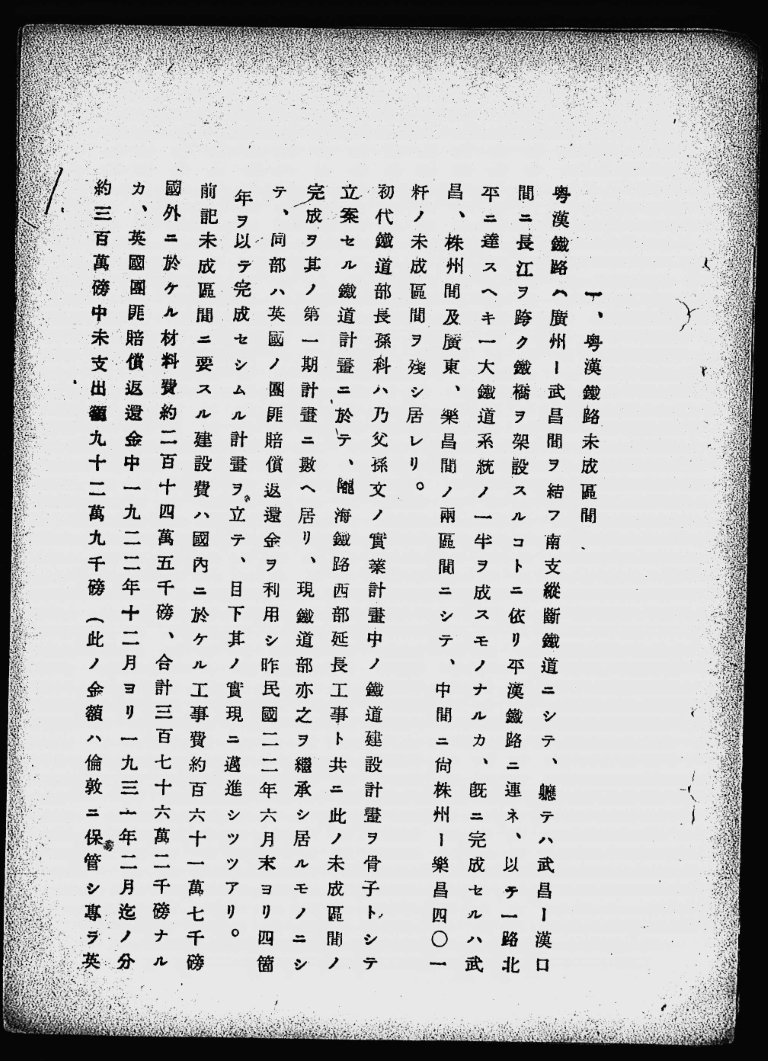 一、粤漢鐵路未成區間
粤漢鐵路ハ廣州ー武昌間ヲ結フ南支縱斷鐵道ニシテ、軈テハ武昌ー漢口
間ニ長江ヲ跨ク鐵橋ヲ架設スルコトニ依リ平漢鐵路ニ連ネ、以テ一路北
平ニ達スヘキ一大鐵道系統ノ一半ヲ成スモノナルカ、既ニ完成セルハ武
昌、株州間及廣東、樂昌間ノ兩區間ニシテ、中間ニ尙株州ー樂昌四〇一
粁ノ未成區間ヲ殘シ居レリ。
初代鐵道部長孫科ハ乃父孫文ノ實業計畫中ノ鐵道建設計畫ヲ骨子トシテ
立案セル鐵道計畫ニ於テ、隴海鐵路西部延長工事ト共ニ此ノ未成區間ノ
完成ヲ其ノ第一期計畫ニ數ヘ居リ、現鐵道部亦之ヲ繼承シ居ルモノニシ
テ、同部ハ英國ノ團匪賠償返還金ヲ利用シ昨民國二二年六月末ヨリ四箇
年ヲ以テ完成セシムル計畫ヲ立テ、目下其ノ實現ニ邁進シツツアリ。
前記未成區間ニ要スル建設費ハ國內ニ於ケル工事費約百六十一萬七千磅
國外ニ於ケル材料費約二百十四萬五千磅、合計三百七十六萬二千磅ナル
カ、英國團匪賠償返還金中一九二二年十二月ヨリ一九三一年二月迄ノ分
約三百萬磅中未支出額九十二萬九千磅（此ノ金額ハ倫敦ニ保管シ專ラ英